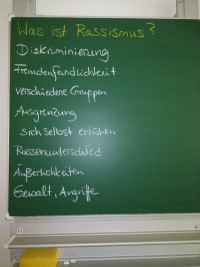 Was ist Rassismus?
Diskriminierung
Fremdenfeindlichkeit
verschiedene Gruppen
Ausgrenzung
sich selbst erhöhen
Rassenunterschied
Äußerlichkeiten
Gewalt, Angriffe